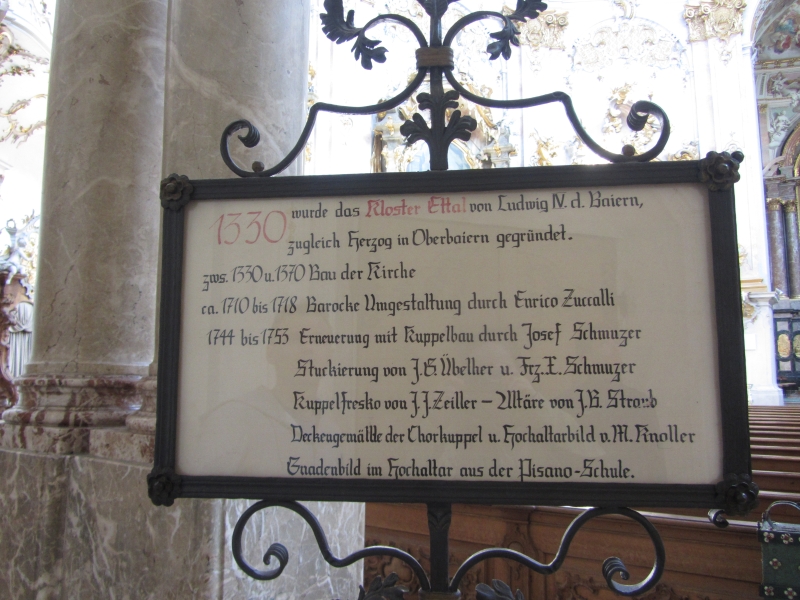 1330 wurde das Kloster Ettal von Ludwig IV. d. Baiern,
zugleich Herzog in Oberbaiern gegründet.
zws. 1330 u. 1370 Bau der Kirche
ca. 1710 bis 1718 Barocke Umgestaltung durch Enrico Zuccalli
1744 bis 1753 Erneuerung mit Kuppelbau durch Josef Schmuzer
Stuckierung von J.G. Übelher u. Frz. X. Schmuzer
Kuppelfresko von J.J. Zeiller – Altäre von J.B. Straub
Deckengemälde der Chorkuppel u. Hochaltarbild v. M. Knoller
Gnadenbild im Hochaltar aus der Pisano-Schule.